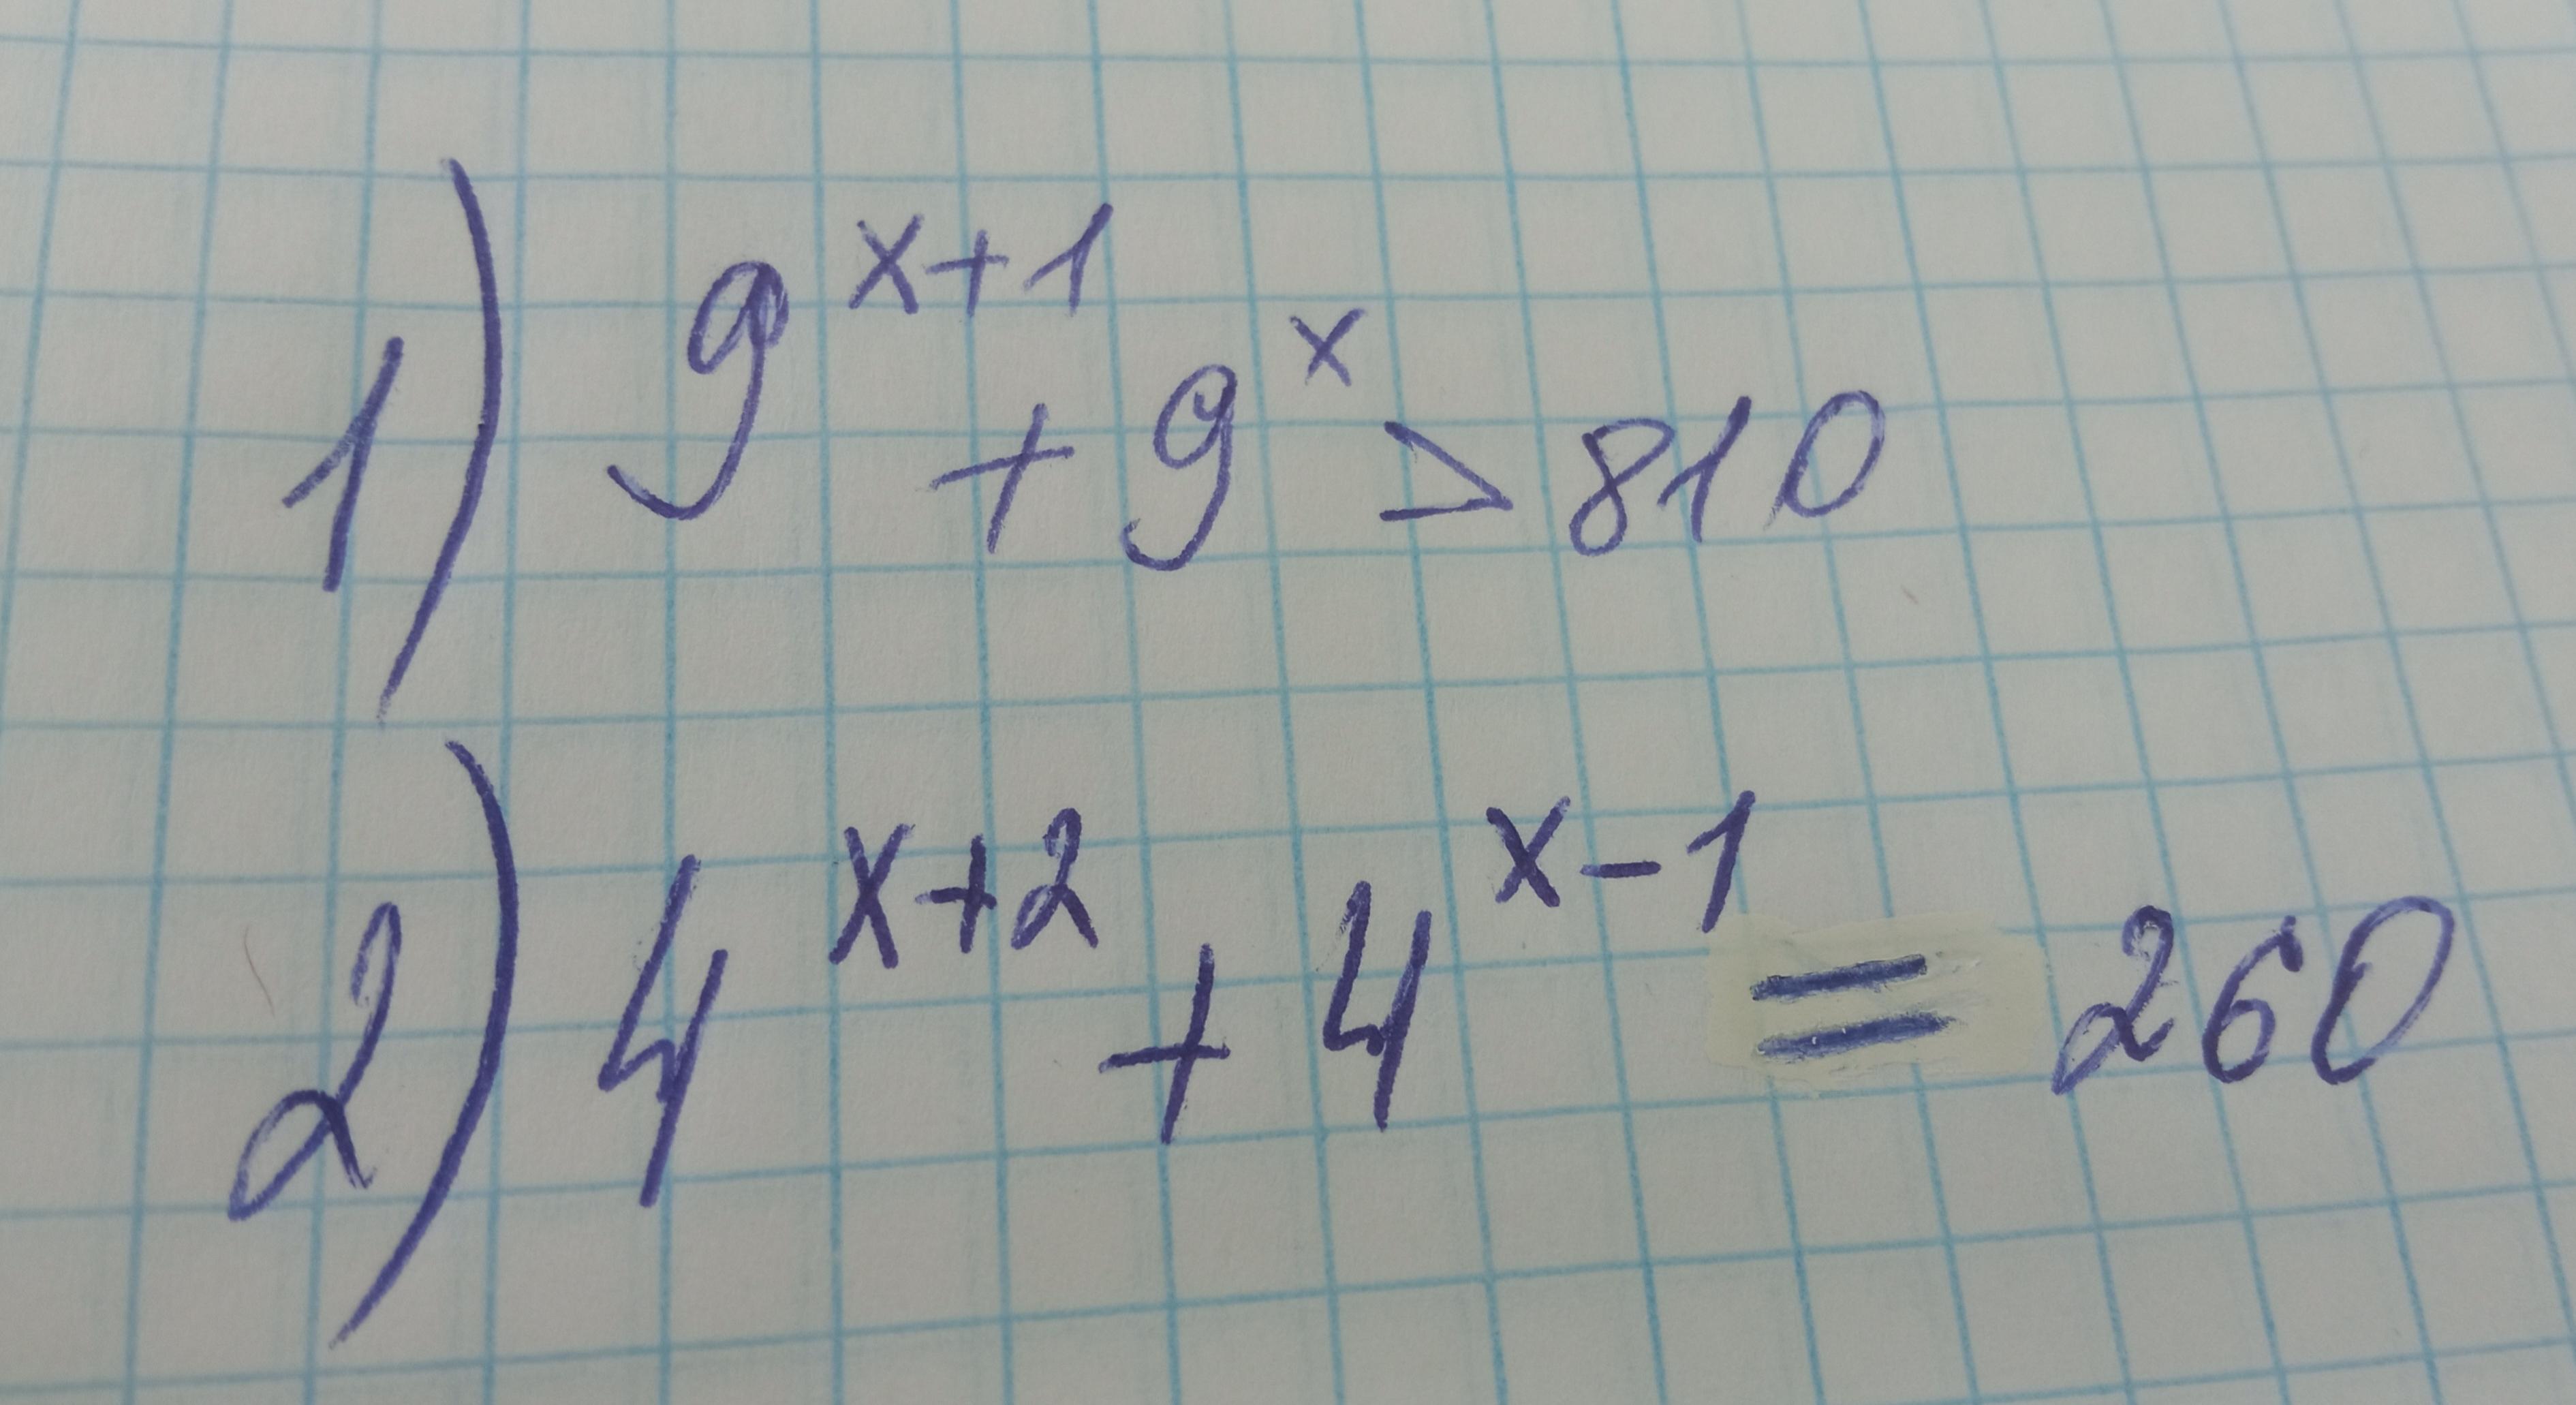 1) 9^{x+1} + 9^x > 810
2) 4^{x+2} + 4^{x-1} = 260